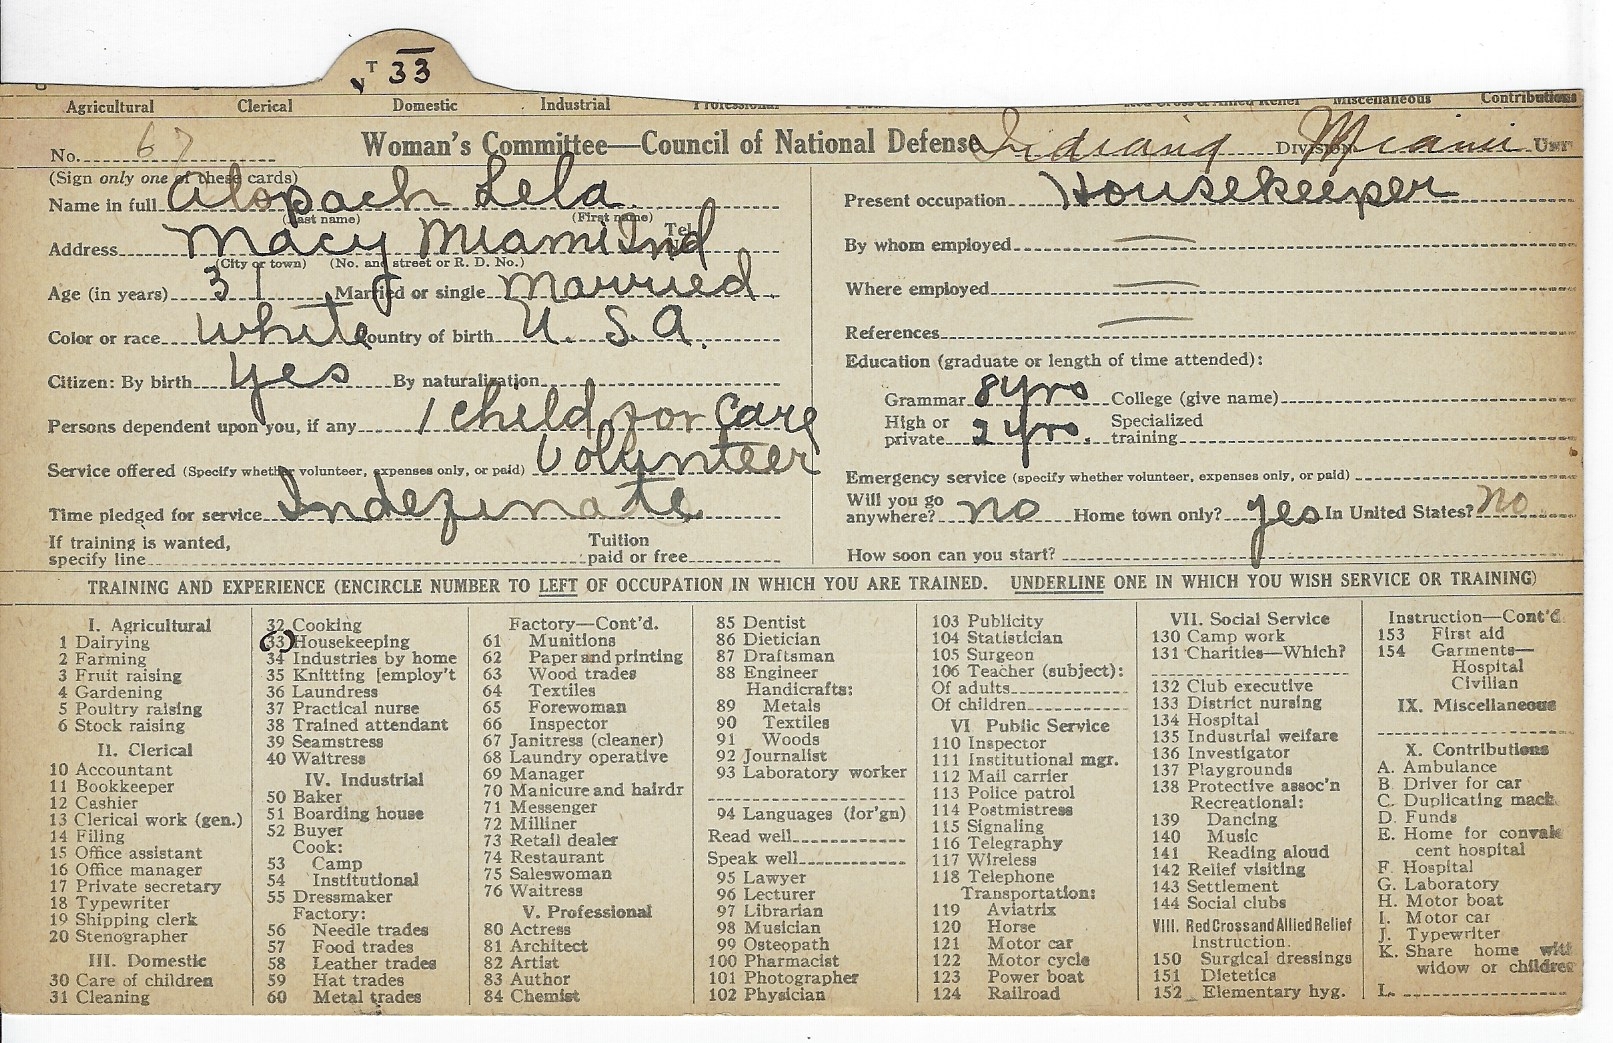 T 33
Agricultural Clerical Domestic Industrial Professional Red Cross & Allied Relief Miscellaneous Contributions
No. 67 Woman's Committee—Council of National Defense Indiana Division Miami Unit
(Sign only one of these cards)
Name in full Alspach Lela
(Last name) (First name)
Address Macy Miami Ind Tel.
(City or town) (No. and street or R. D. No.)
Age (in years) 31 Married or single Married
Color or race White Country of birth U. S. A.
Citizen: By birth Yes By naturalization
Persons dependent upon you, if any 1 child for care
Service offered (Specify whether volunteer, expenses only, or paid) Volunteer
Time pledged for service Indefinate
If training is wanted,
specify line Tuition
paid or free
Present occupation Housekeeper
By whom employed
Where employed
References
Education (graduate or length of time attended):
Grammar 8 yrs College (give name)
High or
private 2 yrs. Specialized
training
Emergency service (specify whether volunteer, expenses only, or paid)
Will you go
anywhere? no Home town only? yes In United States? no
How soon can you start?
TRAINING AND EXPERIENCE (ENCIRCLE NUMBER TO LEFT OF OCCUPATION IN WHICH YOU ARE TRAINED. UNDERLINE ONE IN WHICH YOU WISH SERVICE OR TRAINING)
I. Agricultural
1 Dairying
2 Farming
3 Fruit raising
4 Gardening
5 Poultry raising
6 Stock raising
II. Clerical
10 Accountant
11 Bookkeeper
12 Cashier
13 Clerical work (gen.)
14 Filing
15 Office assistant
16 Office manager
17 Private secretary
18 Typewriter
19 Shipping clerk
20 Stenographer
III. Domestic
30 Care of children
31 Cleaning
32 Cooking
33 Housekeeping
34 Industries by home
35 Knitting [employ't
36 Laundress
37 Practical nurse
38 Trained attendant
39 Seamstress
40 Waitress
IV. Industrial
50 Baker
51 Boarding house
52 Buyer
Cook:
53 Camp
54 Institutional
55 Dressmaker
Factory:
56 Needle trades
57 Food trades
58 Leather trades
59 Hat trades
60 Metal trades
Factory—Cont'd.
61 Munitions
62 Paper and printing
63 Wood trades
64 Textiles
65 Forewoman
66 Inspector
67 Janitress (cleaner)
68 Laundry operative
69 Manager
70 Manicure and hairdr
71 Messenger
72 Milliner
73 Retail dealer
74 Restaurant
75 Saleswoman
76 Waitress
V. Professional
80 Actress
81 Architect
82 Artist
83 Author
84 Chemist
85 Dentist
86 Dietician
87 Draftsman
88 Engineer
Handicrafts:
89 Metals
90 Textiles
91 Woods
92 Journalist
93 Laboratory worker
94 Languages (for'gn)
Read well
Speak well
95 Lawyer
96 Lecturer
97 Librarian
98 Musician
99 Osteopath
100 Pharmacist
101 Photographer
102 Physician
103 Publicity
104 Statistician
105 Surgeon
106 Teacher (subject):
Of adults
Of children
VI Public Service
110 Inspector
111 Institutional mgr.
112 Mail carrier
113 Police patrol
114 Postmistress
115 Signaling
116 Telegraphy
117 Wireless
118 Telephone
Transportation:
119 Aviatrix
120 Horse
121 Motor car
122 Motor cycle
123 Power boat
124 Railroad
VII. Social Service
130 Camp work
131 Charities—Which?
132 Club executive
133 District nursing
134 Hospital
135 Industrial welfare
136 Investigator
137 Playgrounds
138 Protective assoc'n
Recreational:
139 Dancing
140 Music
141 Reading aloud
142 Relief visiting
143 Settlement
144 Social clubs
VIII. Red Cross and Allied Relief
Instruction.
150 Surgical dressings
151 Dietetics
152 Elementary hyg.
Instruction—Cont'd.
153 First aid
154 Garments—
Hospital
Civilian
IX. Miscellaneous
X. Contributions
A. Ambulance
B. Driver for car
C. Duplicating mach.
D. Funds
E. Home for convales
cent hospital
F. Hospital
G. Laboratory
H. Motor boat
I. Motor car
J. Typewriter
K. Share home with
widow or children
L.